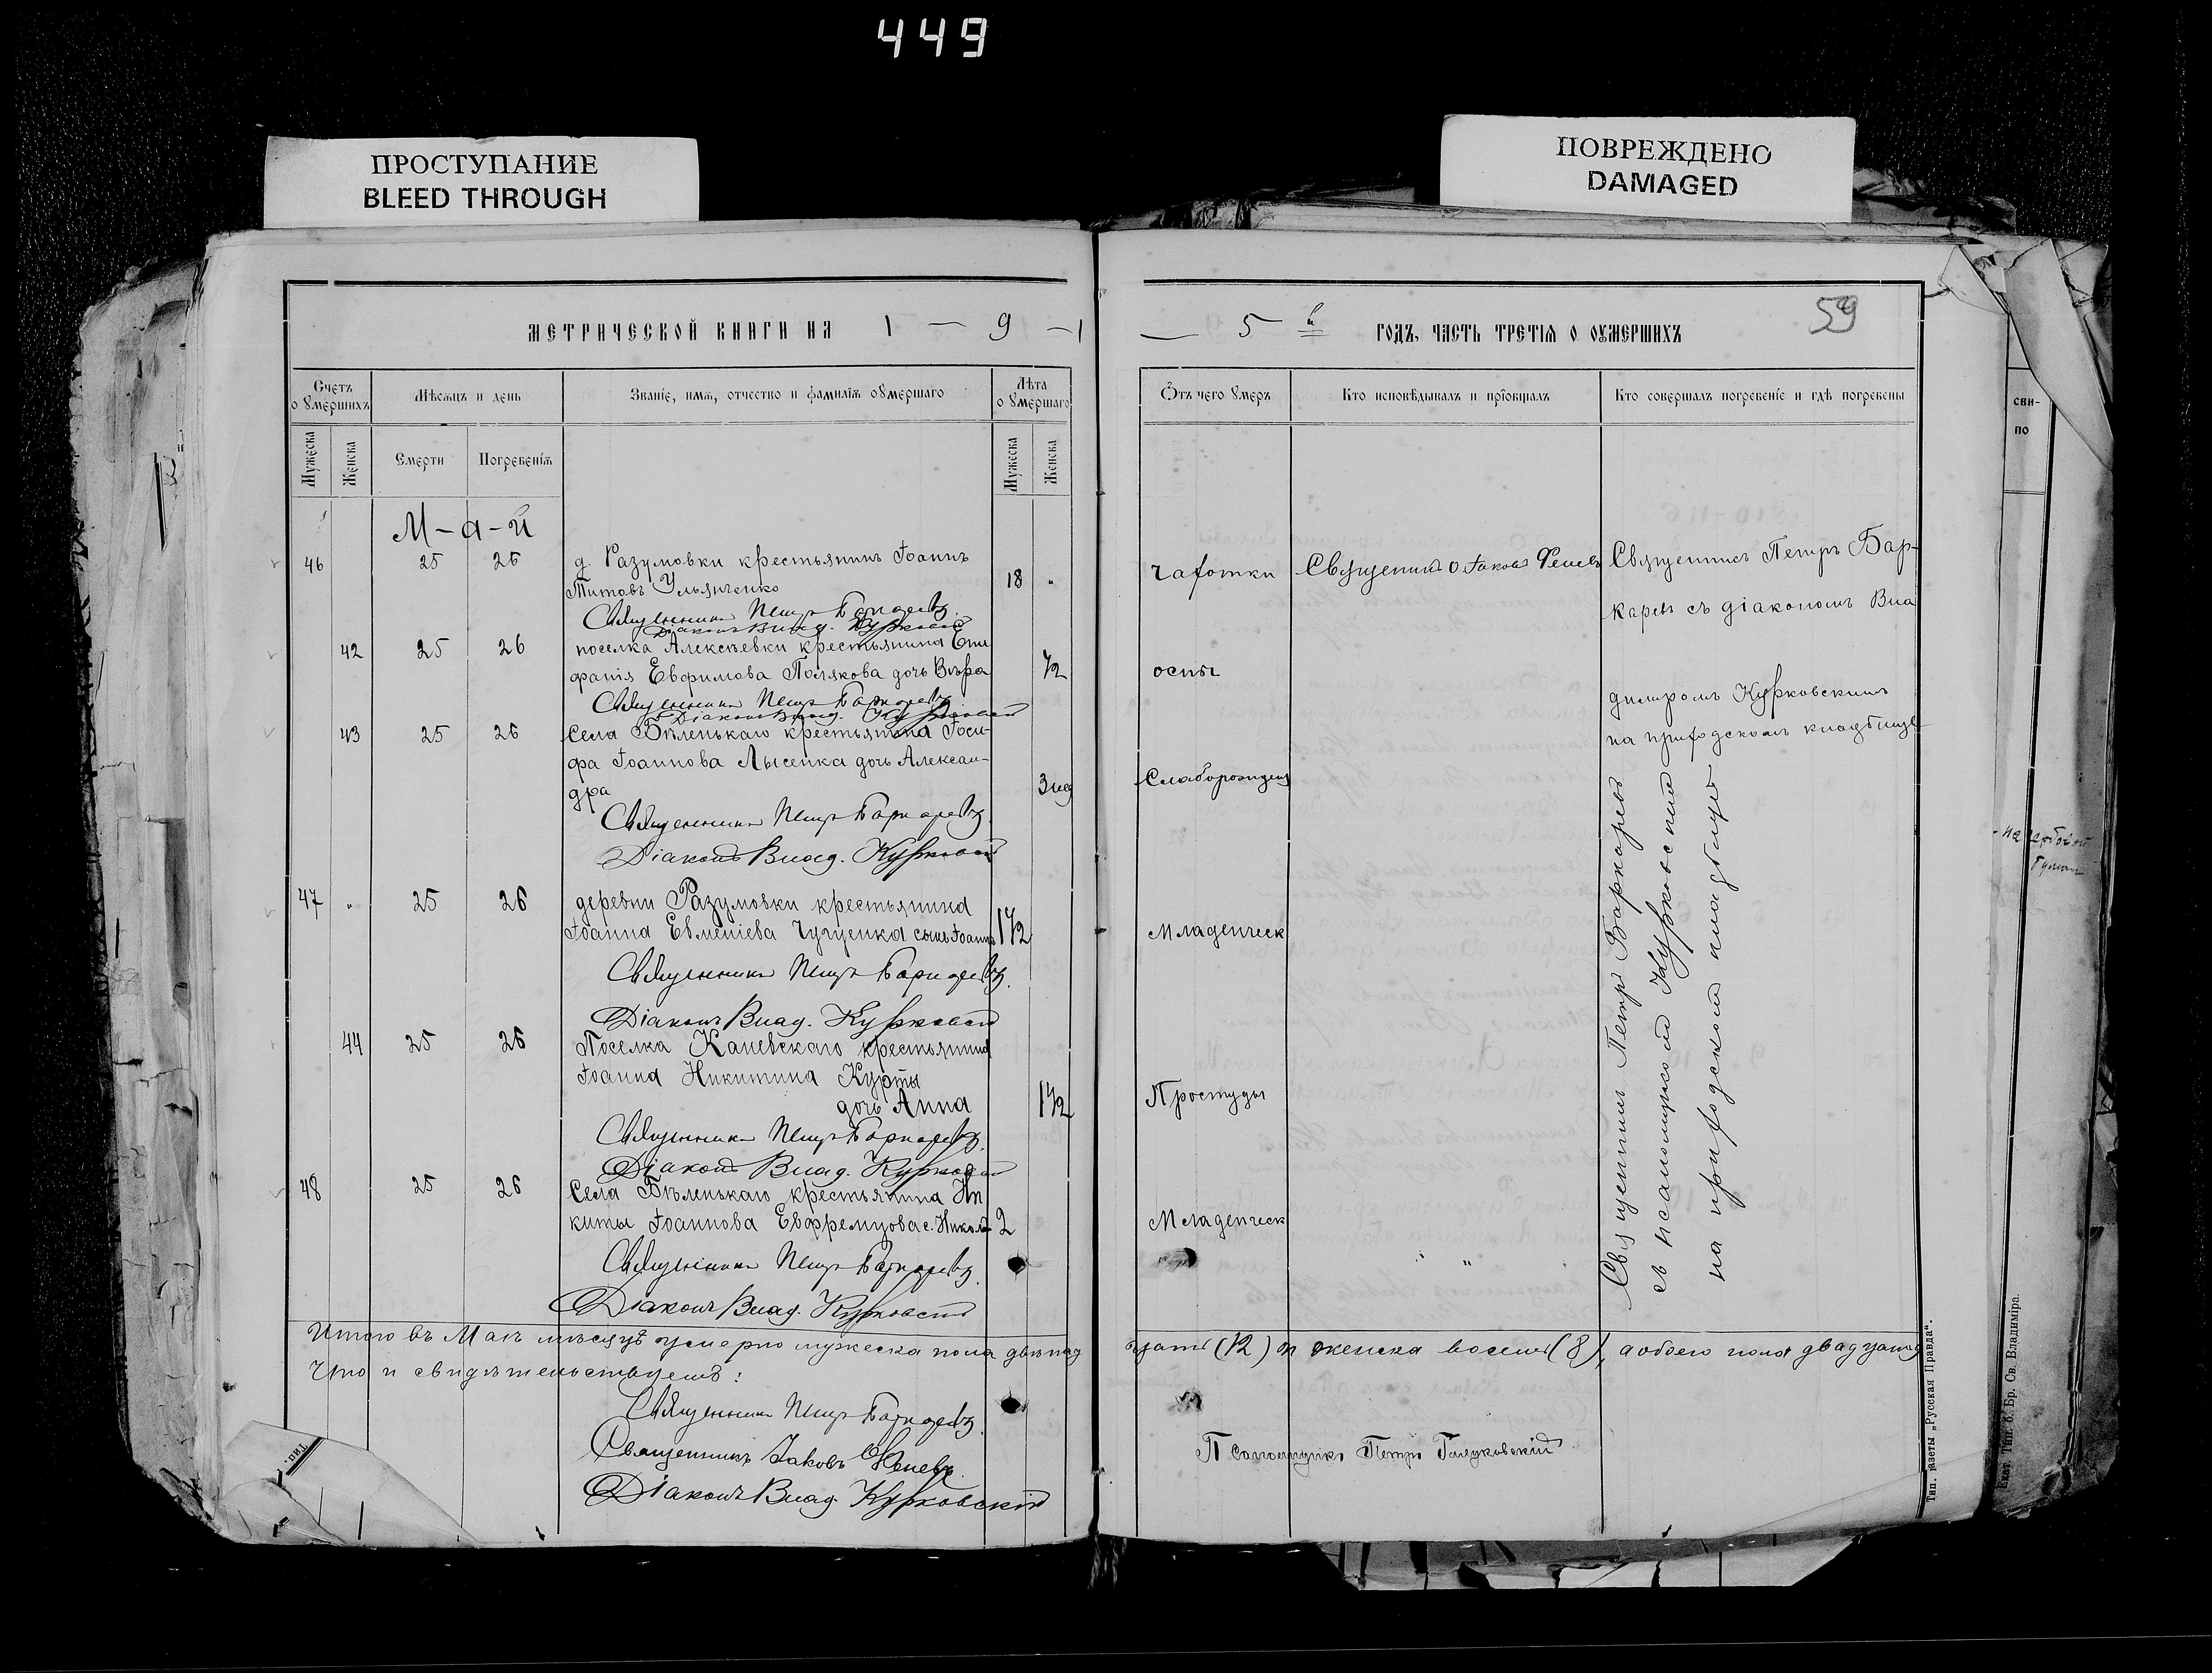 449
ПРОСТУПАНИЕ
BLEED THROUGH
ПОВРЕЖДЕНО
DAMAGED
МЕТРИЧЕСКОЙ КНИГИ НА 1 — 9 —
— 5 й ГОДЪ, ЧАСТЬ ТРЕТІѦ О ОУМЕРШИХЪ
59
Счетъ о умершихъ
Мѣсѧцъ и день
Званіе, имѧ, отчество и фамиліѧ оумершаго
Лѣта о умершаго
Отъ чего умеръ
Кто исповѣдывалъ и пріобщалъ
Кто совершалъ погребеніе и гдѣ погребены
Мужеска
Женска
Смерти
Погребеніѧ
Мужеска
Женска
М-а-й
46 25 26 д. Разумовки крестьянинъ Іоаннъ
Титовъ Ульянченко 18 „
чахотки Священникъ о Іаковъ Фенев Священникъ Петръ Бар-
каревъ съ діакономъ Вла
Священникъ Петръ Баркаревъ.
Діаконъ Влад. Курковскій
42 25 26 поселка Алексѣевки крестьянина Епи
фанія Евфимова Полякова дочь Вѣра 1/2
оспы
димиромъ Курковскимъ
на приходскомъ кладбищѣ
Священникъ Петръ Баркаревъ
Діаконъ Влад. Курковскій
43 25 26 Села Бѣленькаго крестьянина Іоси-
фа Іоаннова Лысенка дочь Алексан-
дра 3 нед
Слаборожден
Священникъ Петръ Баркаревъ
Діаконъ Влад. Курковскій
47 „ 25 26 деревни Разумовки крестьянина
Іоанна Евменіева Чугуенка сынъ Іоаннъ 1 1/2
Младенческ
Священникъ Петръ Баркаревъ.
Діаконъ Влад. Курковскій
44 25 26 Поселка Каневскаго крестьянина
Іоанна Никитина Курты
дочь Анна 1 1/2
Простуды
Священникъ Петръ Баркаревъ.
Діаконъ Влад. Курковскій
48 25 26 Села Бѣленькаго крестьянина Ни
киты Іоаннова Евфремцова с. Николай 2
Младенческ
Священникъ Петръ Баркаревъ.
Діаконъ Влад. Курковскій
Священникъ Петръ Баркаревъ
съ псаломщикомъ Курковскимъ
на приходскомъ кладбищѣ
Итого въ Маѣ мѣсяцѣ умерло мужеска пола двѣнад
цать (12) и женска восемь (8), а обоего пола двадцать
Что и свидѣтельствуемъ:
Священникъ Петръ Баркаревъ.
Священникъ Іаковъ Феневъ.
Діаконъ Влад. Курковскій
Псаломщикъ Петръ
Тип. газеты „Русская Правда“.
Екат. Тип. б. Бр. Св. Владиміра.
Тип.
сви-
по